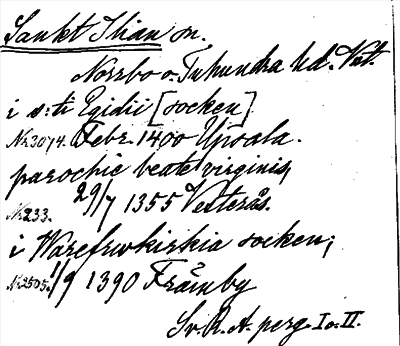 Sankt Ilian sn.
Norrbo o. Tuhundra hd. Vstm.
i s:ti Egidii [socken]
Nr 3074. Febr. 1400 Upsala.
parochie beate virginis,
Nr 233. 29/7 1355 Vesterås.
i Warefrwkirkia socken;
Nr 2505. 1/9 1390 Främby
Sv. R. A. perg. I o. II.